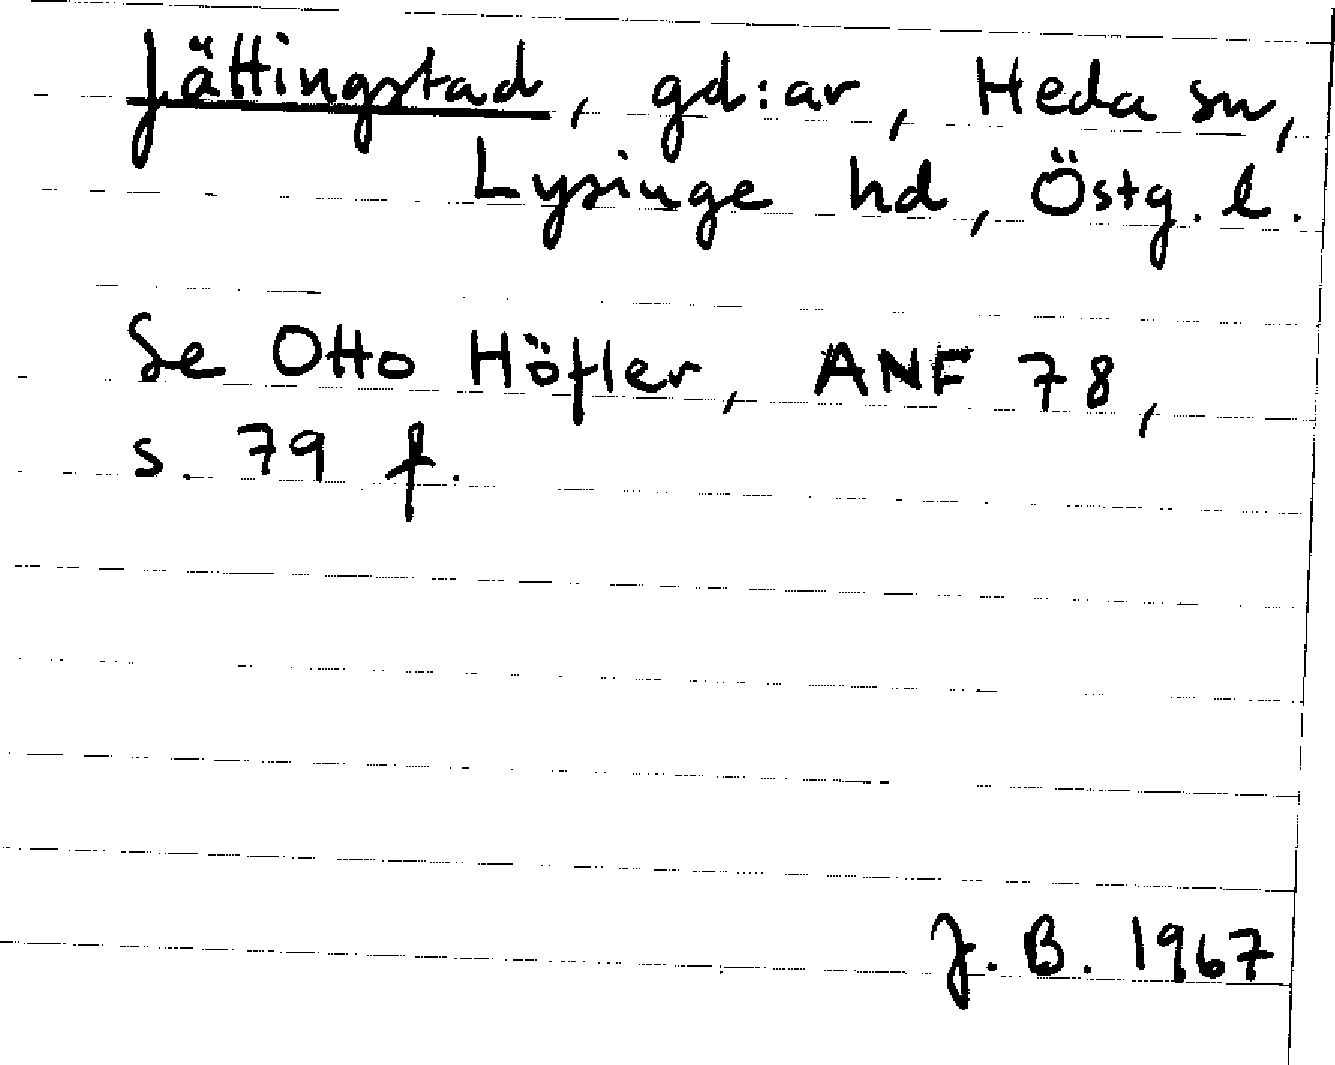 Jättingstad, gd:ar, Heda sn,
Lysinge hd, Östg. l.
Se Otto Höfler, ANF 78,
s. 79 f.
J. B. 1967